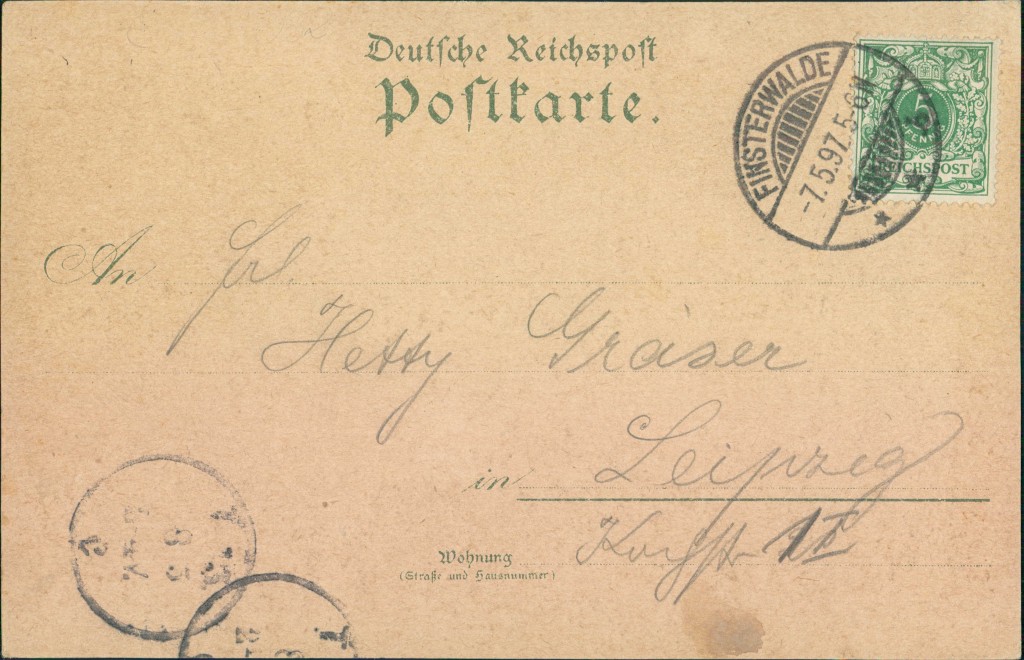 Deutsche Reichspost
Postkarte.
FINSTERWALDE
-7.5.97.5-6N
5
REICHSPOST
An Frl.
Hetty Gräser
in Leipzig
Wohnung
(Straße und Hausnummer)